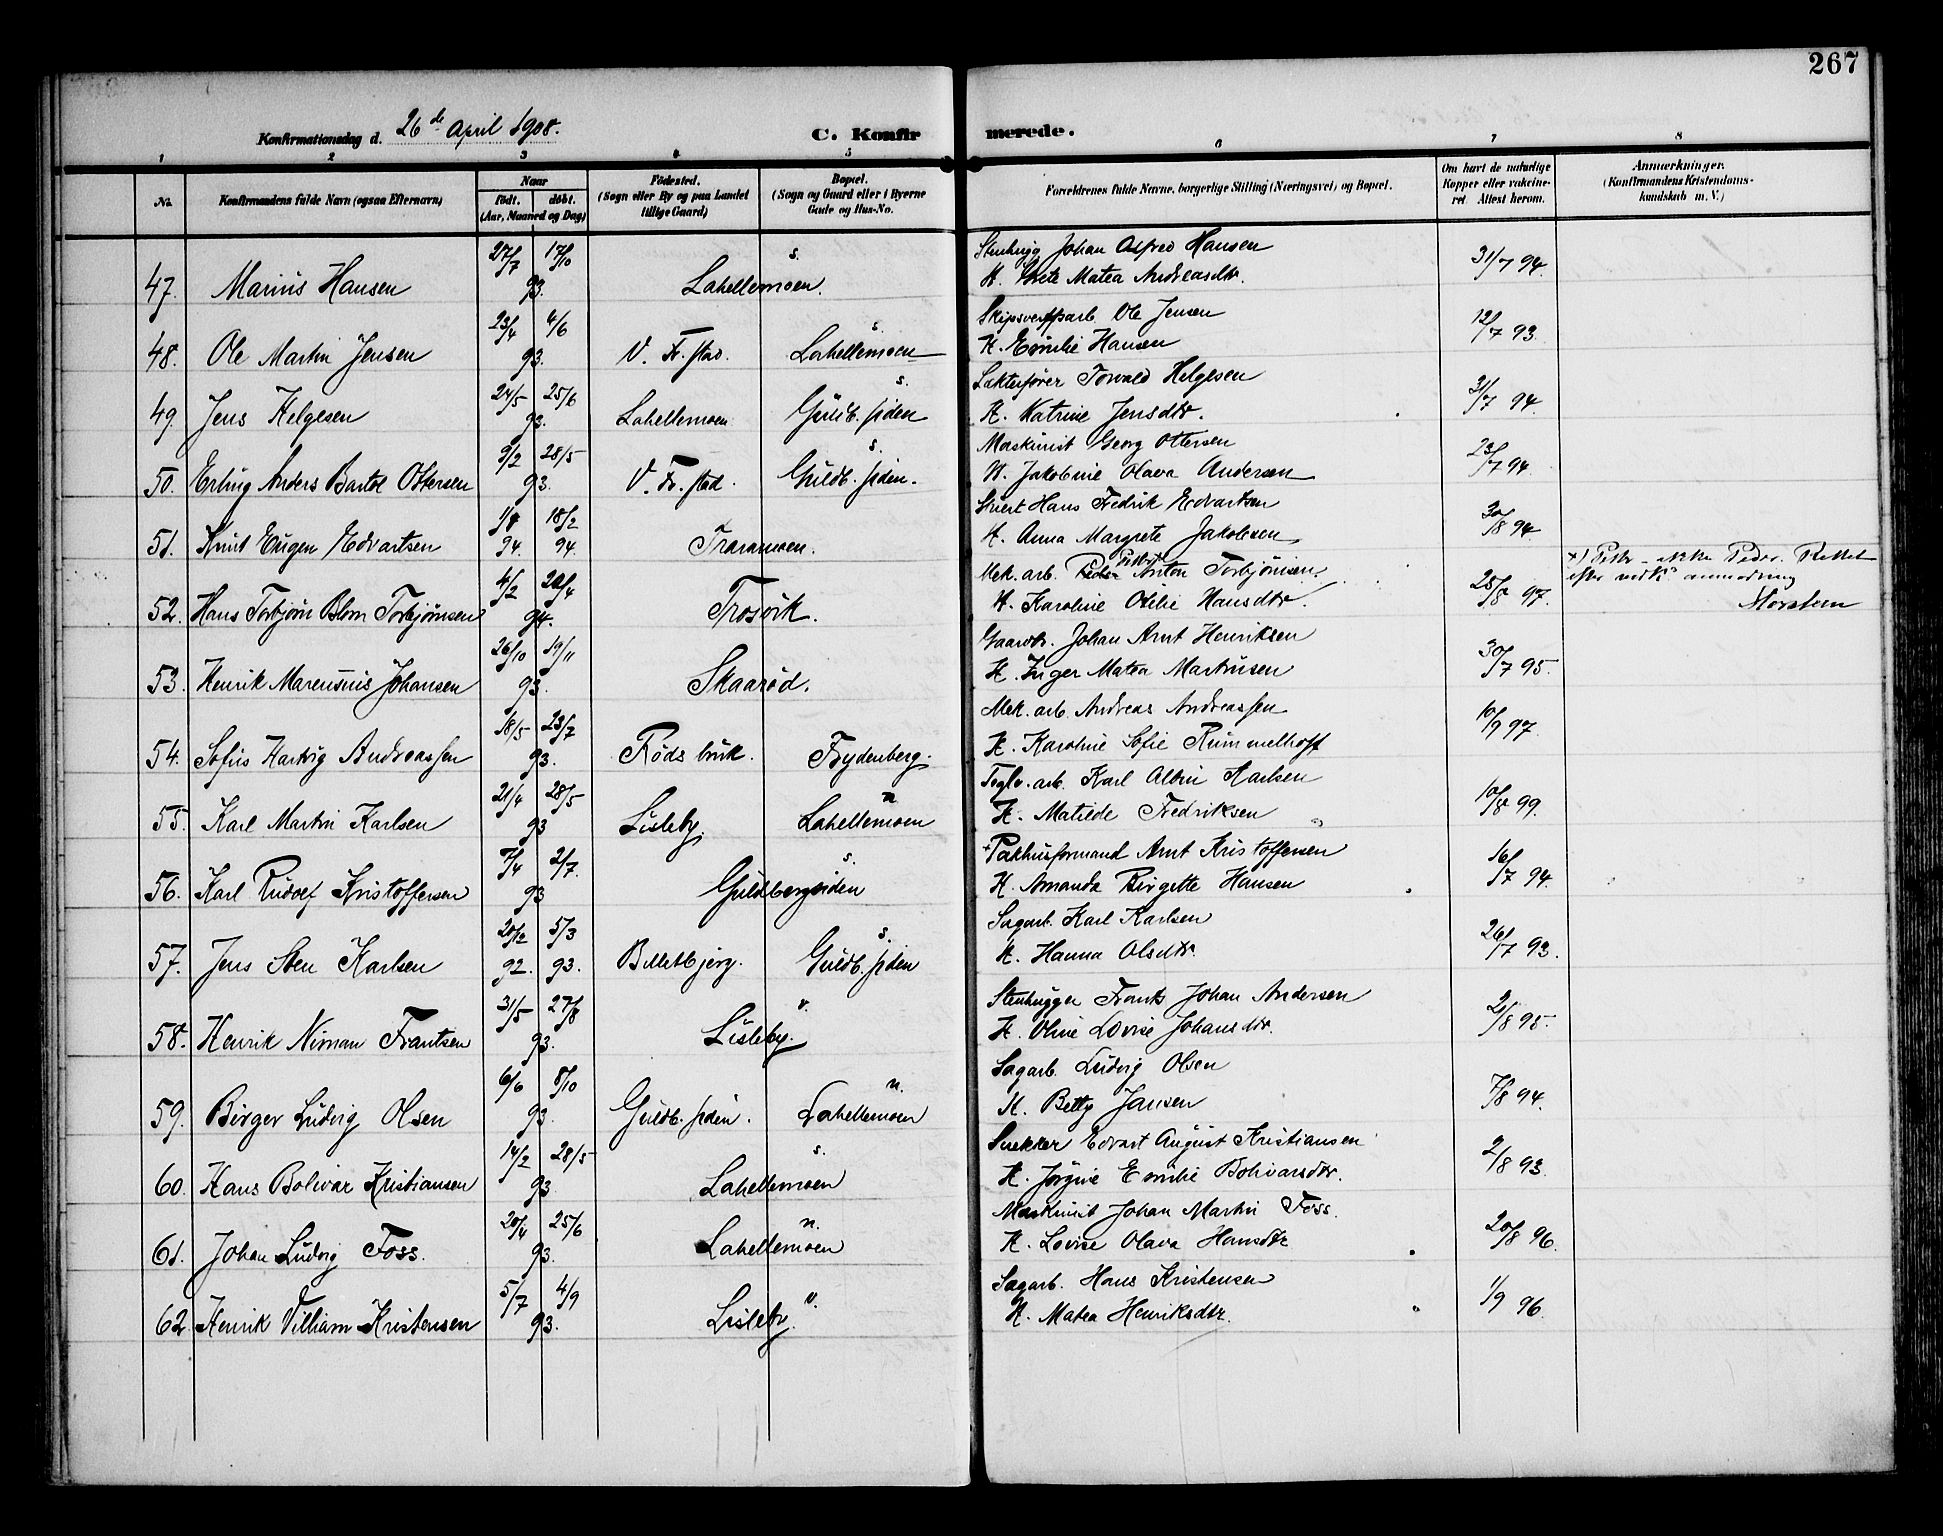 267
Konfirmationsdag d. 26de April 1908.
C. Konfirmerede.
1 2 3 4 5 6 7 8
No. Konfirmandens fulde Navn (ogsaa Efternavn) Naar født. døbt. (Aar, Maaned og Dag) Fødested. (Sogn eller By og paa Landet tillige Gaard) Bopæl. (Sogn og Gaard eller i Byerne Gade og Hus-No. Forældrenes fulde Navne, borgerlige Stilling (Næringsvei) og Bopæl. Om havt de naturlige Kopper eller vakcineret. Attest herom. Anmærkninger. (Konfirmandens Kristendomskundskab m. V.)
47. Marius Hansen 27/7 17/10 93. Lahellemoen. s. Stenhugg Johan Alfred Hansen
H. Grete Matea Andreasdtr. 31/7 94.
48. Ole Martin Jensen 23/4 4/6 93. V. Fr.stad. Lahellemoen s. Skipsverftsarb. Ole Jensen
H. Emilie Hansen 12/7 93.
49. Jens Helgesen 24/5 25/6 93. Lahellemoen Guldb.siden s. Lakterfører Torvald Helgesen
H. Katrine Jensdtr. 31/7 94.
50. Erling Anders Bartol Ottersen 9/2 28/5 93. V. Fr.stad. Guldb.siden. s. Maskinist Georg Ottersen
H. Jakobine Olava Andersen 23/7 94.
51. Knut Eugen Edvartsen 1/8 94. 18/2 94. Traramoen. Stuert Hans Fredrik Edvartsen
H. Anna Margrete Jakobsen 30/8 94
52. Hans Torbjørn Blom Torbjørnsen 4/2 94. Trosvik. Mek. arb. Peder Petter Anton Torbjørnsen.
H. Karoline Otilie Hansdtr. 25/8 97. x) Petter - ikke Peder. Rettet
efter vedk.s anmodning
53. Henrik Marensius Johansen 26/10 19/11 93. Skaarød. Gaardbr. Johan Arnt Henriksen
H. Inger Matea Martinsen 30/7 95.
54. Sofus Hartvig Andreassen 18/5 23/7 93. Røds bruk. Frydenberg. Mek. arb. Andreas Andreassen
H. Karoline Sofie Rummelhoff 10/9 97.
55. Karl Martin Karlsen 21/4 28/5 93 Lisleby. Lahellemoen n Teglv. arb. Karl Albin Karlsen
H. Matilde Fredriksen 10/8 99.
56. Karl Rudolf Kristoffersen 7/4 2/7. 93 Guldbergsiden s. Pakhusformand Arnt Kristoffersen
H. Amanda Birgitte Hansen 16/7 94.
57. Jens Sten Karlsen 20/12 92. 5/3 93. Billetbjerg. Guldb.siden s. Sagarb. Karl Karlsen
H. Hanna Olsdtr 26/7 93.
58. Henrik Niman Frantsen 31/5 27/8 93. Lisleby. v. Stenhugger Frants Johan Andersen
H. Oline Lovise Johansdtr. 2/8 95.
59. Birger Ludvig Olsen 6/6 8/10 93. Guldb.siden. Lahellemoen n. Sagarb. Ludvig Olsen
H. Betty Jansen 7/8 94.
60. Hans Bolivar Kristiansen 14/2 28/5 93. Lahellemoen s. Snekker Edvart August Kristiansen
H. Jørgine Emilie Bolivarsdtr. 2/8 93.
61. Johan Ludvig Foss. 20/4 25/6 93. Lahellemoen n. Maskinist Johan Martin Foss.
H. Lovise Olava Hansdtr 20/8 96.
62. Henrik Villiam Kristensen 5/7 4/9 93. Lisleby. v. Sagarb. Hans Kristensen
H. Matea Henriksdtr. 1/9 96.